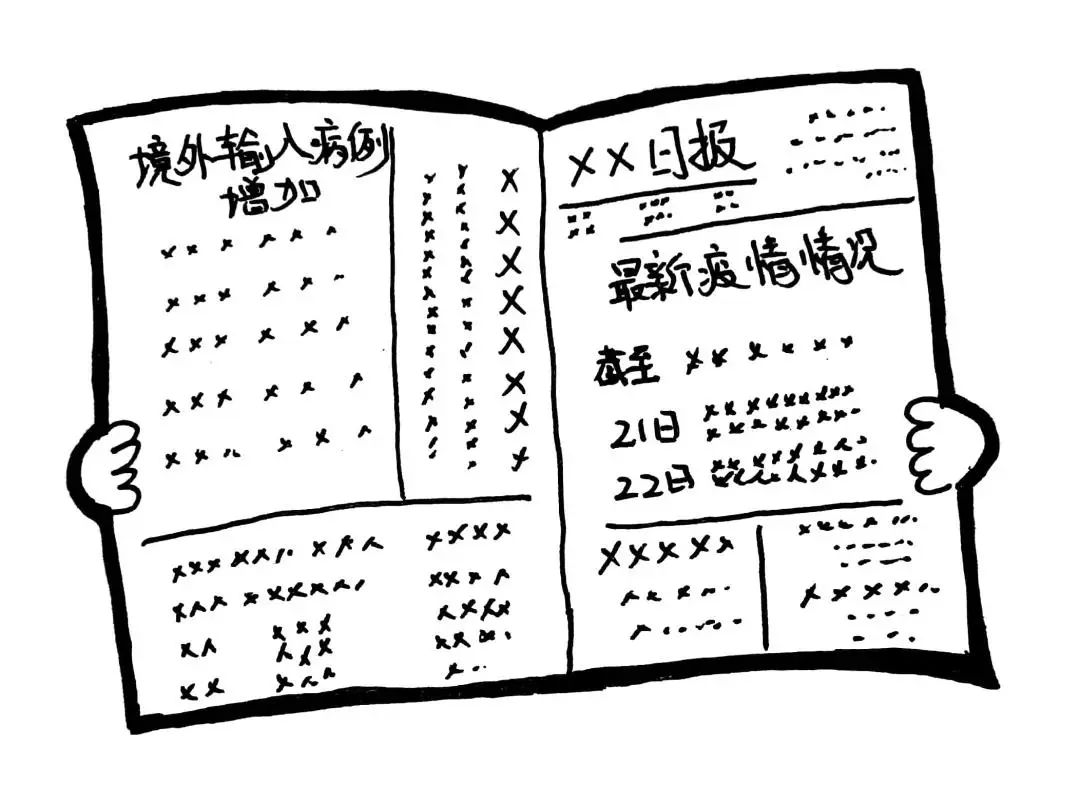 境外输入病例
增加
XX日报
最新疫情情况
截至
21日
22日